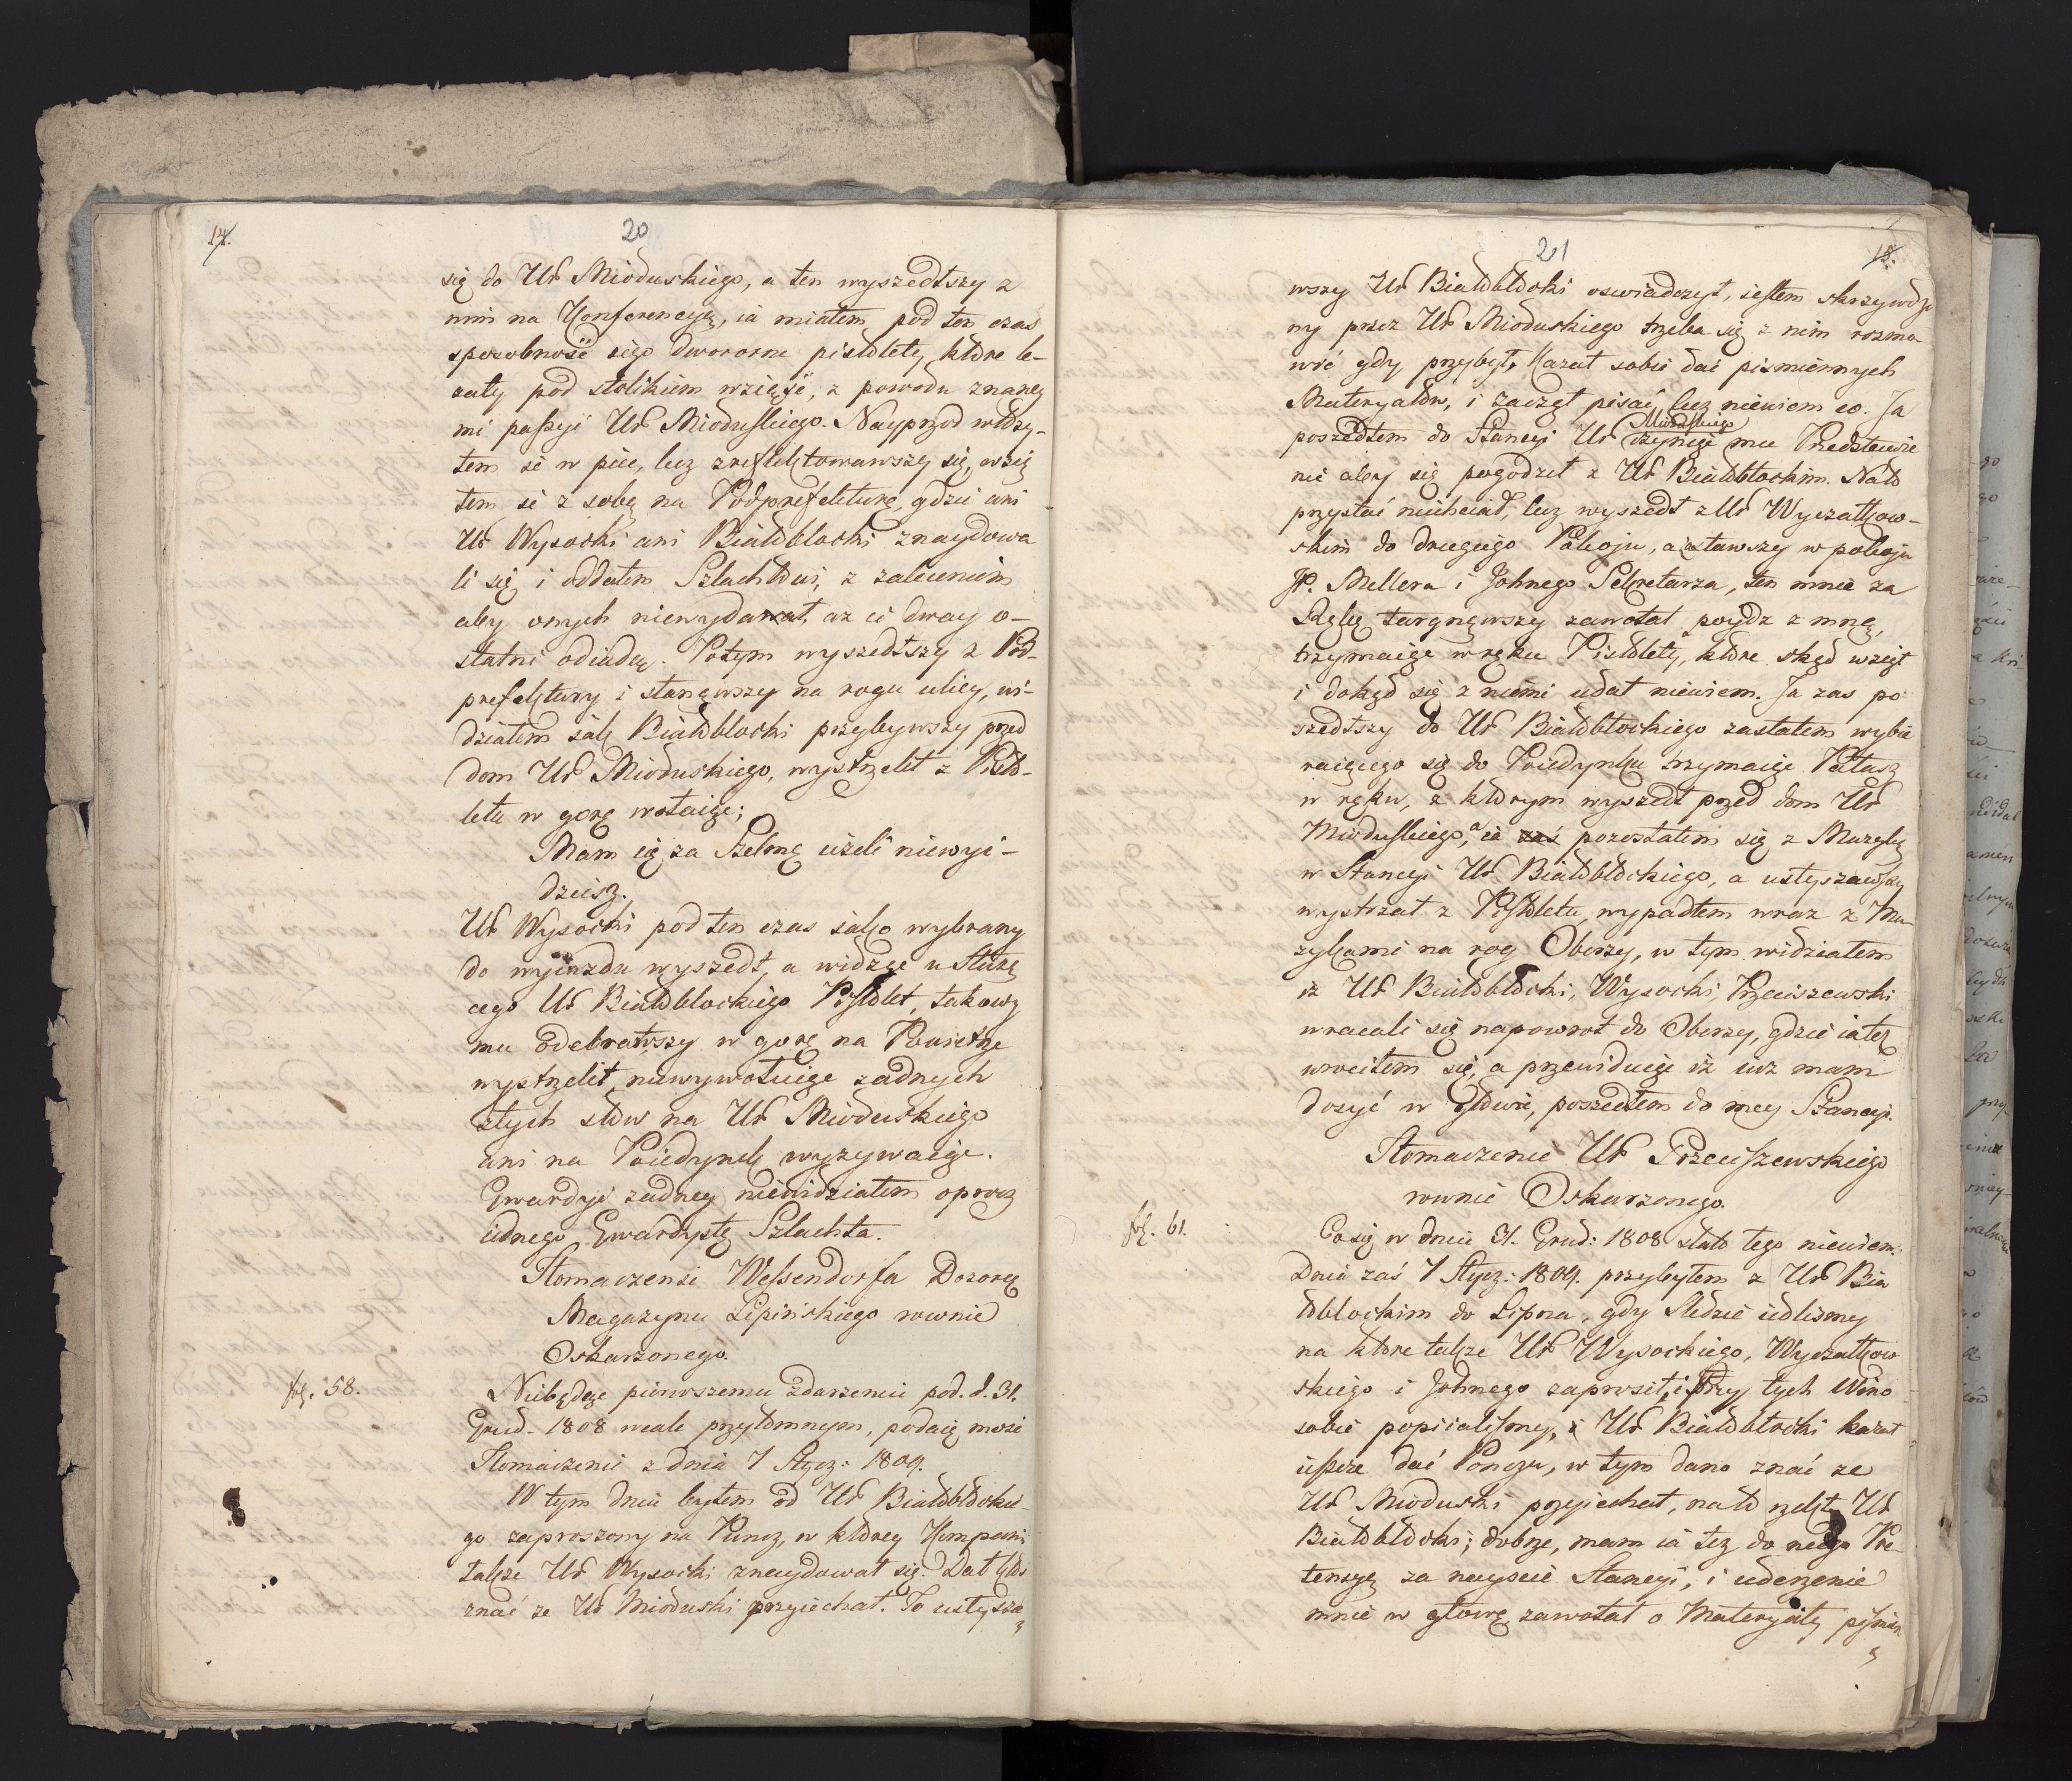 14.
20
się do Ur Mioduskiego, a ten wyszedłszy z
nim na Konferencyą, ia miałem pod ten czas
sposobność iego dwororne pistolety, które le-
żały pod stolikiem wziąść, z powodu znaney
mi passyi Ur Mioduskiego. Nayprzod włoży-
łem ie w piec, lecz zreflektowawszy się, wzią
łem ie z sobą na Podprefekturę, gdzie ani
Ur Wysocki ani Białobłocki znaydowa
li się i oddałem Szlachtowi, z zaleceniem
aby onych niewydawał, az ci dway o-
statni odiadą. Potym wyszedłszy z Pod-
prefektury i stanąwszy na rogu ulicy, wi-
działem iak Białobłocki przybywszy przed
dom Ur Mioduskiego, wystrzelił z Pisto-
letu w gorę wołaiąc;
Mam cię za Szelmę ieżeli niewyi-
dziesz.
Ur Wysocki pod ten czas iako wybrany
do wyiazdu wyszedł, a widząc u Służą
cego Ur Białobłockiego Pistolet, takowy
mu odebrawszy w gorę na Powietrze
wystrzelił, niewywołuiąc żadnych
złych słow na Ur Mioduskiego
ani na Poiedynek wyzywaiąc.
Gwardyi żadney niewidziałem oprocz
iednego Gwardystę Szlachta.
Tłomaczenie Wessendorfa Dozorcę
Magazynu Lipińskiego rownie
Oskarzonego.
fol. 58.
Niebędąc pierwszemu zdarzeniu pod. d. 31.
Grud. 1808 wcale przytomnym, podaię moie
Tłomaczenie z dnia 7 Stycz: 1809.
W tym dniu byłem od Ur Białobłockie-
go zaproszony na Puncz, w ktorey Kompani
także Ur Wysocki znaydował się. Dał kto
znać ze Ur Mioduski przyiechał. To usłysza
21
18.
wszy Ur Białobłocki oswiadczył, iestem skrzywdzo
ny przez Ur Mioduskiego trzeba się z nim rozmo
wić gdy przybył, kazał sobie dać pismiennych
Materyałow, i zaczął pisać lecz niewiem co. Ja
Mioduskiego
poszedłem do Stancyi Ur czyniąc mu Przedstawie
nie aby się pogodził z Ur Białobłockim. Nato
przystać niechciał, lecz wyszedł z Ur Wyczałkow-
skim do drugiego Pokoju, a zostawszy w pokoju
JP. Mellera i Johnego Sekretarza, ten mnie za
Rękę targnąwszy zawołał poydz z mną,
trzymaiąc w ręku Pistolety, które skąd wziął
i dokąd się z niemi udał niewiem. Ja zas po
szedłszy do Ur Białobłockiego zastałem wybie
raiącego się do Poiedynku trzymaiąc Pałasz
w ręku, z którym wyszedł przed dom Ur
Mioduskiego, a ia zaś pozostałem się z Muzyką
w Stancyi Ur Białobłockiego, a usłyszawszy
wystrzał z Pistoletu, wypadłem wraz z Mu-
zykami na rog Oberzy, w tym widziałem
iz Ur Białobłocki, Wysocki, Przeciszewski
wracali się napowrot do Oberzy, gdzie ia też
wrociłem się, a przewiduiąc iż iuż mam
dosyć w głowie, poszedłem do mey Stancyi.
Tłomaczenie Ur Przeciszewskiego
rownie Oskarzonego.
fol. 61.
Co się w dniu 31. Grud: 1808 stało tego niewiem.
Dnia zaś 7 Stycz: 1809. przybyłem z Ur Bia
łobłockim do Lipna, gdy Sledzie iedlismy
na które także Ur Wysockiego, Wyczałkow
skiego i Johnego zaprosił, i przy tych Wino
sobie popiialismy, i Ur Białobłocki kazał
ieszcze dać Ponczu, w tym dano znać ze
Ur Mioduski przyiechał, nato rzekł Ur
Białobłocki; dobrze, mam ia też do niego Pre-
tensyą za nayscie Stancyi, i uderzenie
mnie w głowę, zawołał o Materyały pismien